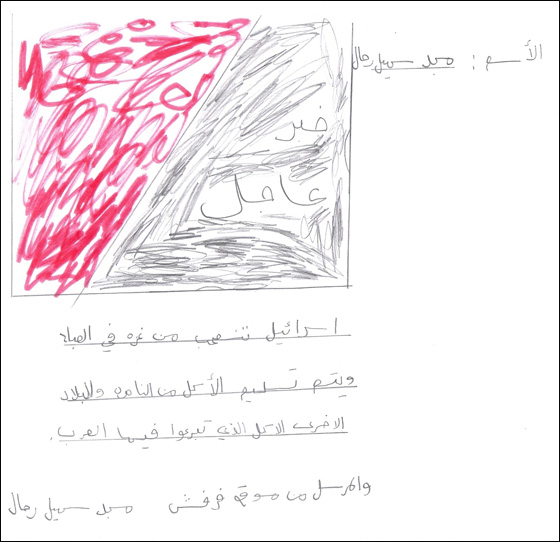 الأسم : مجد سهيل رحال
خبر
عاجل
اسرائيل تنسحب من غزه في الصباح
ويتم تسليم الأكل من الناصره والبلاد
الاخرى الاكل الذي تبرعوا فيها العرب .
والمرسل من موقع فرفش مجد سهيل رحال